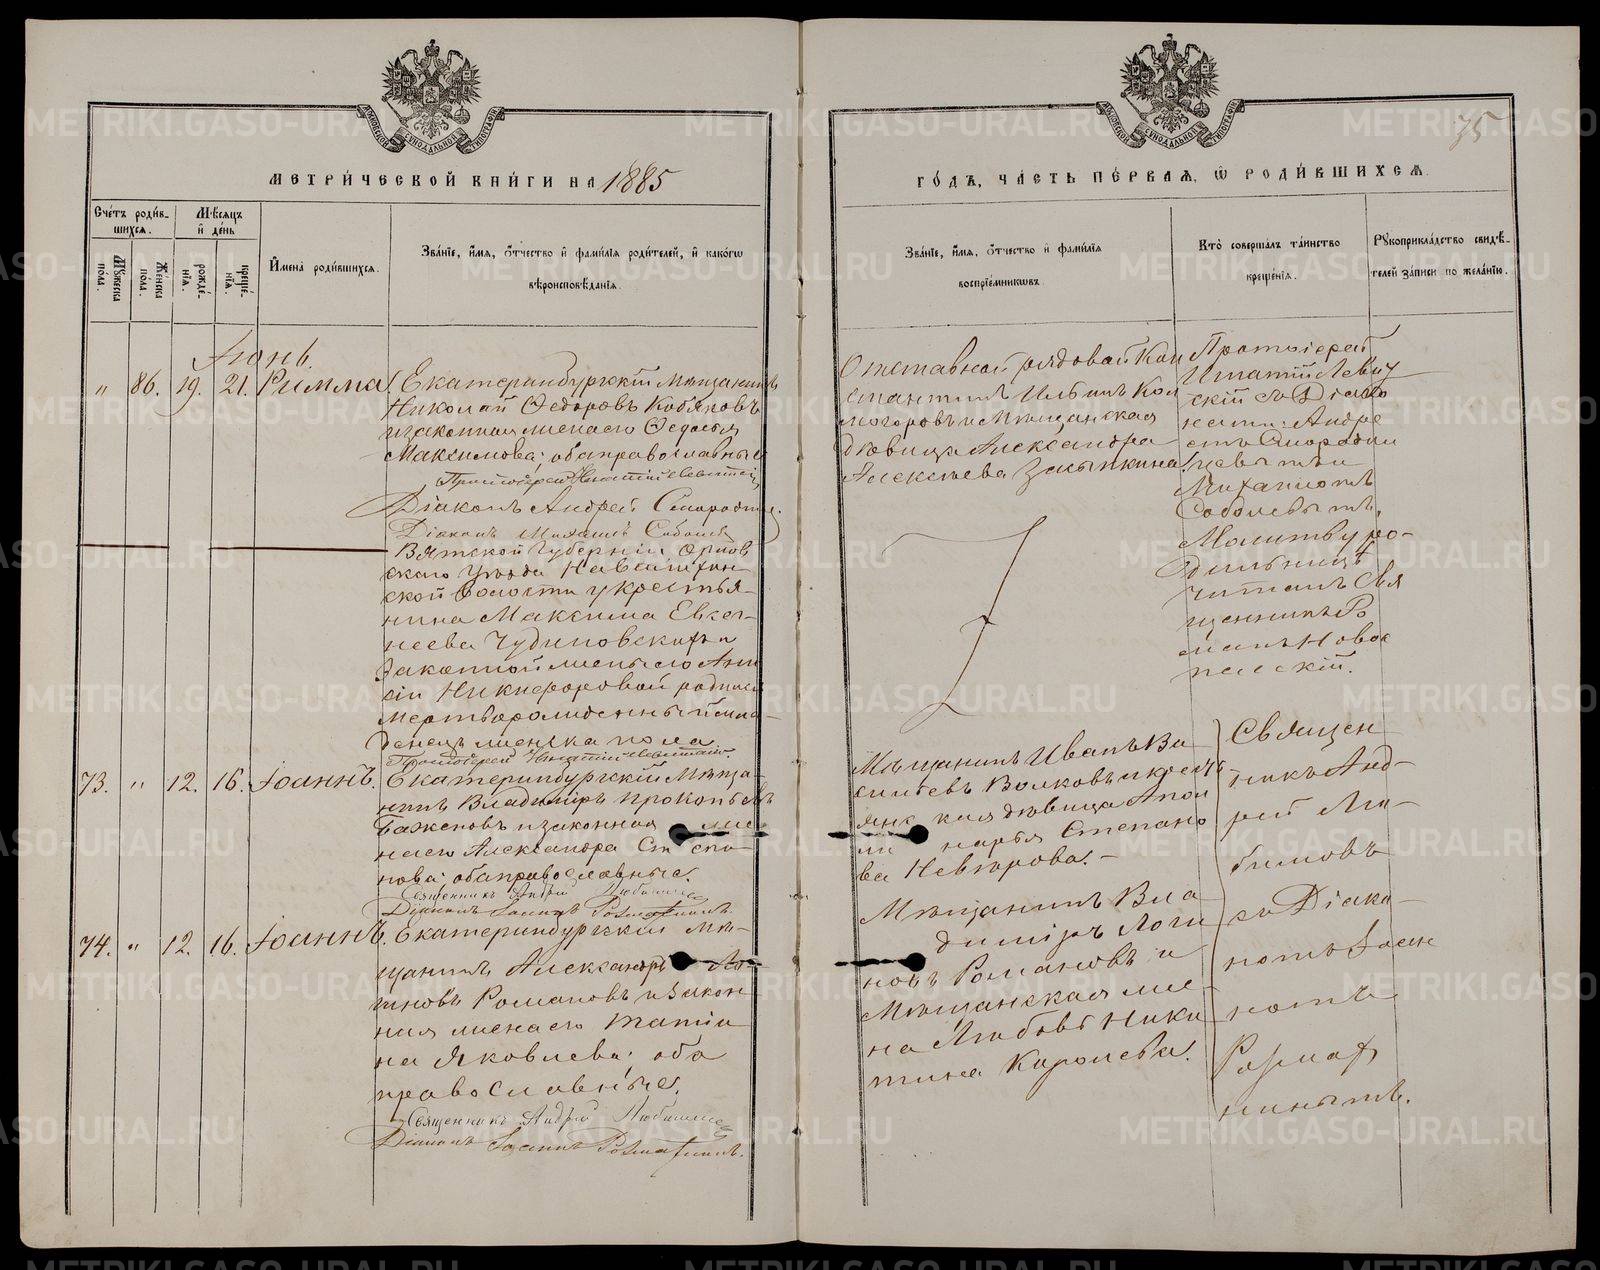 МЕТРИ́ЧЕСКОЙ КНИ́ГИ НА 1885
Сче́тъ роди́в-
шихсѧ.
Мѣ́сѧцъ
и҆ де́нь
Мꙋ́жеска
пола.
Же́нска
по́ла.
рожде́-
нїѧ.
креще́-
нїѧ.
И҆мена̀ роди́вшихсѧ.
Зва́нїе, и҆́мѧ, ѻ҆́тчество и҆ фами́лїѧ роди́телей, и҆ како́гѡ
вѣроисповѣ́данїѧ.
Іюнь.
„ 86. 19. 21. Римма
Екатеринбургскій Мѣщанинъ
Николай Ѳедоровъ Кобяковъ
и законная жена его Ѳедосья
Максимова; оба православные
Протоіерей Игнатій Левитскій
Діаконъ Андрей Смородин
Діаконъ Михаилъ Соболев
Вятской Губерніи Орлов
скаго Уѣзда
ской Волости у крестья-
нина Максима Евсег-
неева Чудиновскихъ и
Законной жены его
Никифоровой родился
мертворожденный мла-
денецъ женска пола
Протоіерей Игнатій Левитскій
73. „ 12. 16. Іоаннъ.
Екатеринбургскій Мѣща-
нинъ Владиміръ Прокопьевъ
Баженовъ и законная же
на его Александра Степа-
нова: оба православные.
Священникъ Андрей Любимов
Діаконъ Іоаннъ
74. „ 12. 16. Іоаннъ.
Екатеринбургскій Мѣ-
щанинъ Александръ Ло-
гиновъ Романовъ и закон
ная жена его Татія
на Яковлева: оба
православные.
Священникъ Андрей Любимов
Діаконъ Іоаннъ
75
ГО́ДЪ, ЧА́СТЬ ПЕ́РВАѦ, Ѡ҆ РОДИ́ВШИХСѦ.
Зва́нїе, и҆́мѧ, ѻ҆́тчество и҆ фами́лїѧ
воспрїе́мникѡвъ.
Кто̀ соверша́лъ та́инство
креще́нїѧ.
Рꙋкоприкла́дство свидѣ́-
телей за́писи по жела́нїю.
Отставной рядовой Кон
стантинъ Ильинъ Кол
ногоровъ и Мѣщанская
дѣвица Александра
Алексѣева Закыпкина.
Протоіерей
Игнатій Левит
скій съ Діако
нами: Андре
емъ Смородин
цевымъ и
Михаиломъ
Соболевымъ.
Молитву ро-
дильницѣ
читалъ Свя
щенникъ Ро
манъ Новос
пасскій.
Мѣщанинъ Иванъ Ва
сильевъ Волковъ и крестъ
янская дѣвица Апол
линарья Степано
ва Невзорова. –
Священ
никъ Анд-
рей Лю-
бимовъ
съ Діако-
номъ Іоан
номъ
Мѣщанинъ Вла
диміръ Логи
новъ Романовъ и
Мѣщанская же-
на Любовь Ники
тина Королева.